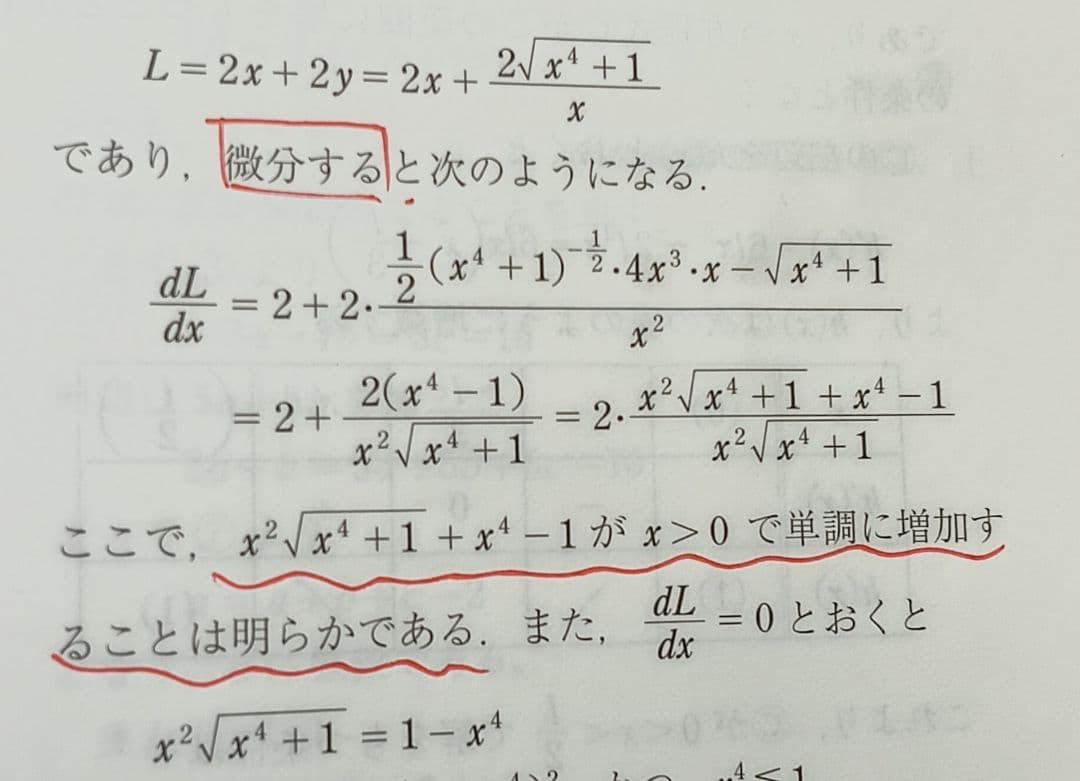 L = 2x + 2y = 2x + \frac{2\sqrt{x^4+1}}{x}
であり，微分すると次のようになる．
\frac{dL}{dx} = 2 + 2・\frac{\frac{1}{2}(x^4+1)^{-\frac{1}{2}}・4x^3・x - \sqrt{x^4+1}}{x^2}
= 2 + \frac{2(x^4-1)}{x^2\sqrt{x^4+1}} = 2・\frac{x^2\sqrt{x^4+1} + x^4 - 1}{x^2\sqrt{x^4+1}}
ここで，x^2\sqrt{x^4+1} + x^4 - 1 が x > 0 で単調に増加す
ることは明らかである．また，\frac{dL}{dx} = 0 とおくと
x^2\sqrt{x^4+1} = 1 - x^4